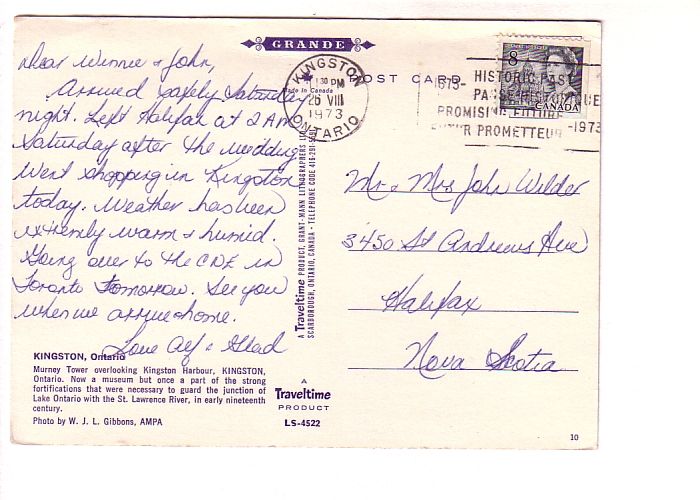 GRANDE
Dear Winnie & John,
Arrived safely Saturday
night. Left Halifax at 2 AM
Saturday after the wedding
Went shopping in Kingston
today. Weather has been
extremely warm & humid.
Going over to the CNE in
Toronto Tomorrow. See you
when we arrive home.
Love Alf & Glad
KINGSTON, Ontario
Murney Tower overlooking Kingston Harbour, KINGSTON,
Ontario. Now a museum but once a part of the strong
fortifications that were necessary to guard the junction of
Lake Ontario with the St. Lawrence River, in early nineteenth
century.
Photo by W. J. L. Gibbons, AMPA
Made in Canada
POST CARD
KINGSTON
130 PM
26 VIII
1973
ONTARIO
1673- HISTORIC PAST
PASSÉ HISTORIQUE
PROMISING FUTURE
FUTUR PROMETTEUR -1973
8
CANADA
A Traveltime PRODUCT, GRANT-MANN LITHOGRAPHERS
SCARBOROUGH, ONTARIO, CANADA - TELEPHONE CODE 416-291
Mr & Mrs John Wilder
3450 St Andrews Ave
Halifax
Nova Scotia
A
Traveltime
PRODUCT
LS-4522
10